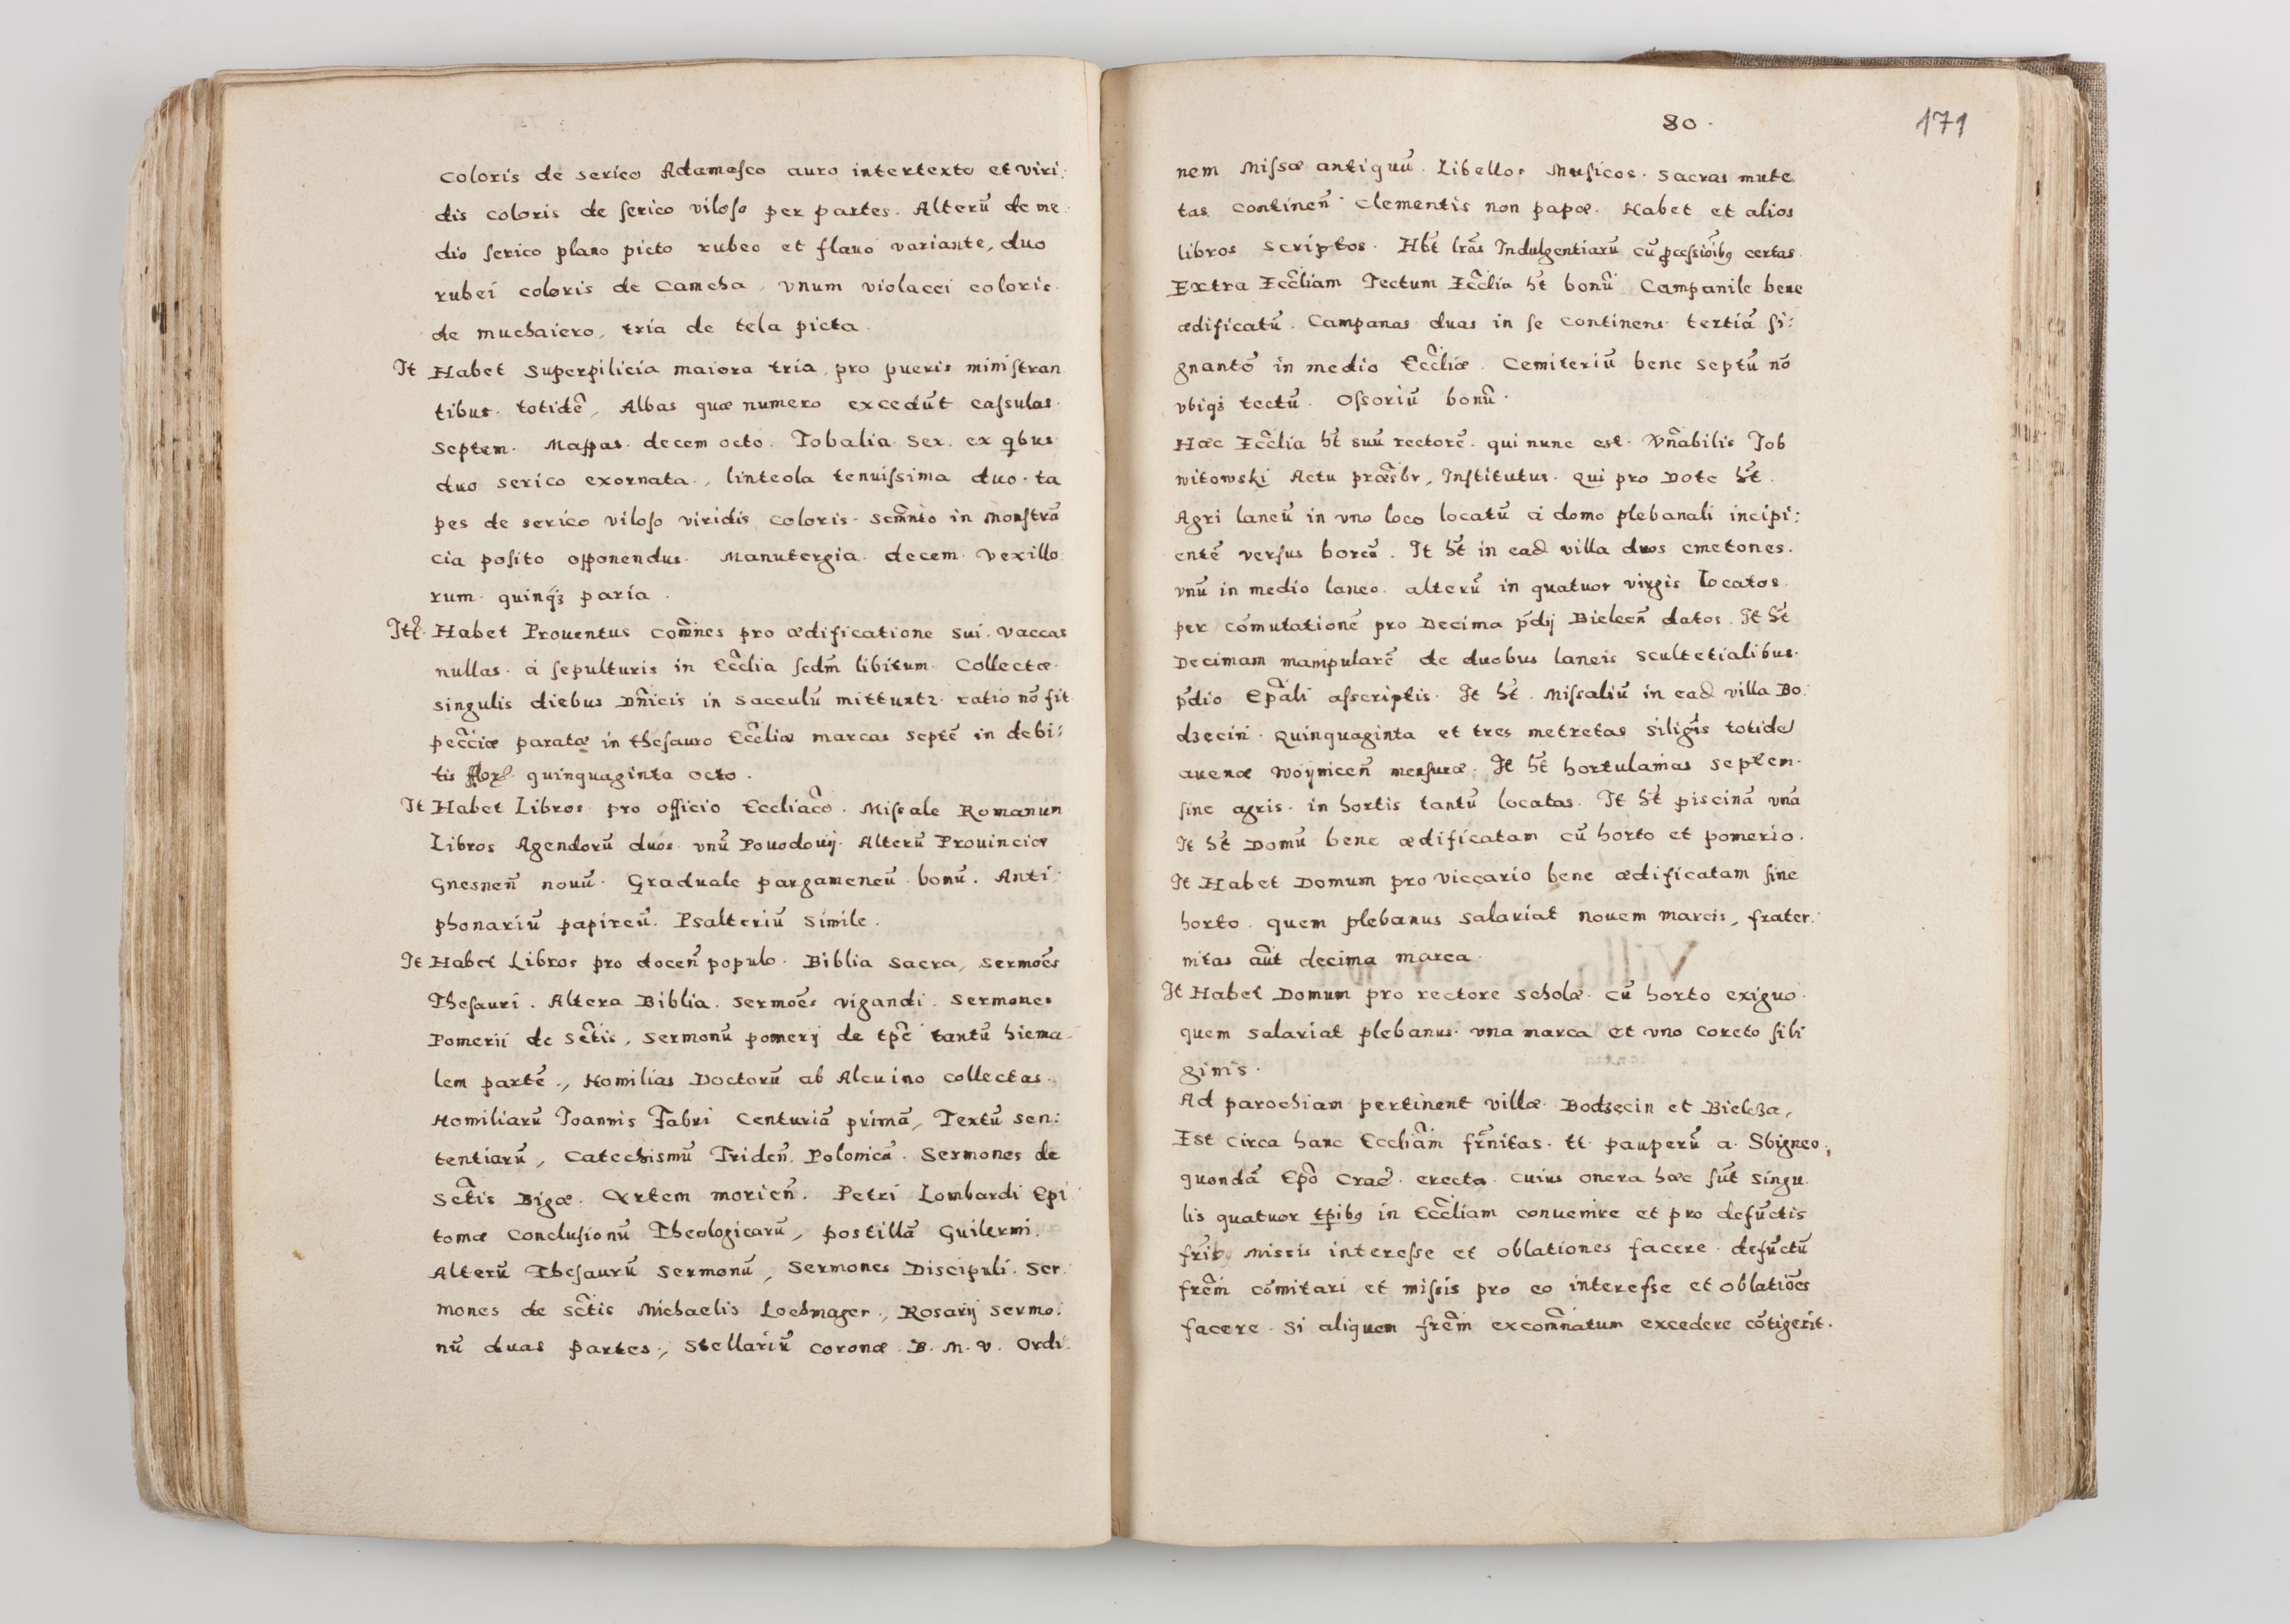 coloris de serico Adamasco auro intertexto et viri:
dis coloris de serico viloso per partes. Alterū de me
dio serico plano picto rubeo et flauo variante, duo
rubei coloris de Camcha, vnum violacei coloris
de muchaiero, tria de tela picta.
It Habet Superpilicia maiora tria, pro pueris ministran
tibus totidē, Albas quæ numero excedūt casulas
septem. Mappas decem octo. Tobalia Sex. ex qbus
duo serico exornata, linteola tenuissima duo. ta
pes de serico viloso viridis coloris. Scm̄nto in Monstrā
cia posito opponendus. Manutergia decem. Vexillo
rum quinqꝫ paria.
Habet Prouentus com̄nes pro ædificatione sui. Vaccas
nullas. á sepulturis in Eccl̄ia scdm̄ libitum. Collectæ
singulis diebus Dn̄icis in Sacculū mittuntꝛ ratio nō fit
pecc̄iæ paratæ in thesauro Eccl̄iæ marcas septē in debi:
tis quinquaginta octo.
It Habet Libros pro officio Eccliac̄o. Missale Romanum
Libros Agendorū duos vnū Pouodouij. Alterū Prouinciæ
Gnesnen̄ nouū. Graduale pargameneū bonū. Anti:
phonariū papireū. Psalteriū simile.
It Habet Libros pro docen̄ populo. Biblia Sacra, sermōes
Thesauri. Altera Biblia. sermōes vigandi. sermones
Pomerii de Sc̄tis, sermonū pomerij de tp̄e tantū hiema
lem partē., Homilias Doctorū ab Alcuino collectas.
Homiliarū Joannis Fabri Centuriā primā, Textū sen:
tentiarū, Catechismū Triden̄. Polonicū. Sermones de
Sc̄tis Bigæ. Artem morien̄. Petri Lombardi Epi
tomæ Conclusionū Theologicarū, postillā Guilermi.
Alterū Thesaurū Sermonū, Sermones Discipuli. Ser
mones de sc̄tis Michaelis Lochmayer, Rosarij sermo:
nū duas partes., Stellariū coronæ B. M. V. Ordi:
80.
171
nem Missæ antiquū. Libellos Musicos. Sacras mute
tas continen̄. Clementis non papæ. Habet et alios
libros scriptos. Hb̄t lrās Indulgentiarū cū certas
Extra Eccl̄iam Tectum Eccl̄ia h̄t bonū Campanile bene
ædificatū. Campanas duas in se continens tertiā si:
gnantē in medio Eccl̄iæ. Cemiteriū bene septū nō
vbiqꝫ tectū. Ossoriū bonū.
Hæc Eccl̄ia h̄t suū rectorē. qui nunc est Vn̄abilis Job
witowski Actu præsbr, Institutus. qui pro Dote h̄t.
Agri laneū in vno loco locatū á domo plebanali incipi:
entē versus boreā. It h̄t in ead villa duos cmetones.
vnū in medio laneo. alterū in quatuor virgis locatos
per cōmutationē pro Decima p̄dij Bielcen̄ datos. It h̄t
Decimam mampularē de duobus laneis Scultetialibus
p̄dio Ep̄ali asscriptis. It h̄t Missaliū in ead villa Bo:
dzęcin. Quinquaginta et tres metretas siligīs totide
auenæ Woynicen̄ mensuræ. It h̄t hortulanias septem
sine agris in hortis tantū locatas. It h̄t piscinā vnā
It h̄t Domū bene ædificatam cū horto et pomerio.
It Habet Domum pro viccario bene ædificatam sine
horto. quem plebanus salariat nouem marcis, frater:
nitas aūt decima marca.
It Habet Domum pro rectore scholæ cū horto exiguo.
quem salariat plebanus vna marca et vno coreto sili
ginis.
Ad parochiam pertinent villæ Bodzęcin et Bielcza,
Est circa hanc Eccliām frn̄itas tt pauperū a Sbigneo
quondā Ep̄o Crac̄. erecta. cuius onera hæc sūt singu
lis quatuor tp̄ibꝯ in Eccl̄iam conuenire et pro defūctis
fr̄ibꝯ Missis interesse et oblationes facere. defūctū
frēm cōmitari et missis pro eo interesse et oblatiōes
facere. Si aliquem frēm excom̄natum excedere cōtigerit.